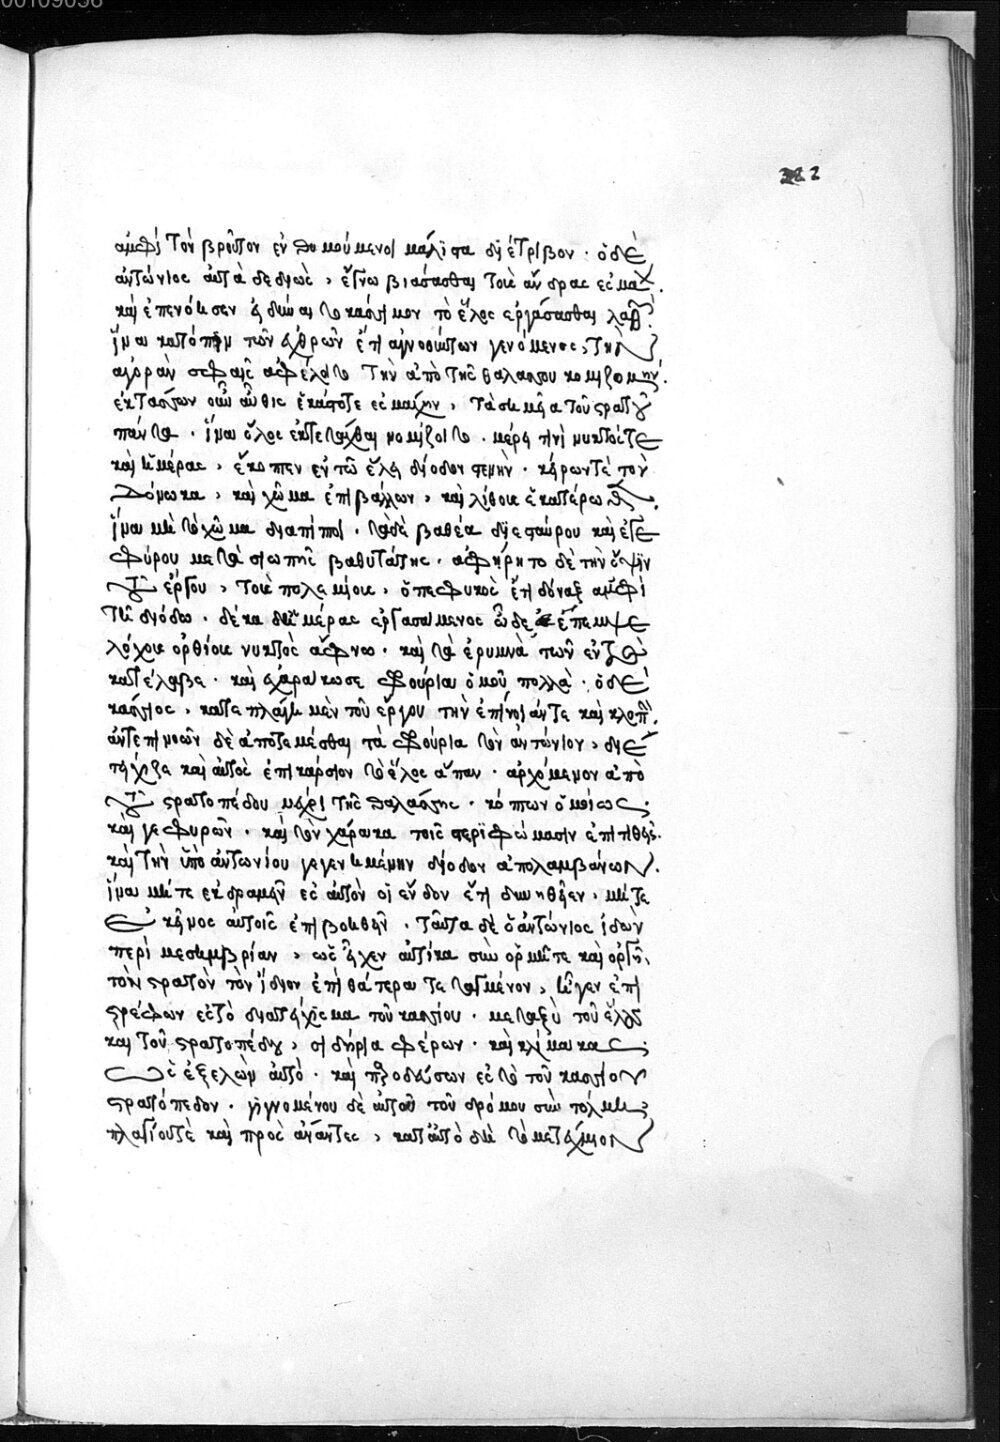 00109056
322
ἀμφὶ τὸν βροῦτον ἐνθυμούμενοι μάλιστα διέτριβον · ὁ δὲ
ἀντώνιος αὐτὰ δεδιὼς, ἔγνω βιάσασθαι τοὺς ἄνδρας ἐς μάχ.
καὶ ἐπενόησεν εἰ δύναιτο βάσιμον τὸ ἕλος ἐργάσασθαι λαθ.
ἵνα κατόπιν τῶν ἐχθρῶν ἔτι ἀγνοούντων γενόμενος, τὴν
ἀγορὰν σφᾶς ἀφέλοιτο τὴν ἀπὸ τῆς θαλάσσου κομιζομην.
ἐκτάσσων οὖν αὖθις ἑκάστοτε ἐς μάχην, τὰ σημεῖα τοῦ στρατοῦ
πάντα · ἵνα ὅλος ἐκτετάχθαι νομίζοιτο · μέρει τινὶ νυκτός τε
καὶ ἡμέρας, ἔκοπτεν ἐν τῷ ἕλει δίοδον στενὴν · κείρων τὲ τὸν
δόνακα, καὶ χῶμα ἐπιβάλλων, καὶ λίθους ἑκατέρωθεν.
ἵνα μὴ τὸ χῶμα διαπίπτοι · τὰ δὲ βαθέα διεσταύρου καὶ ἐγε
φύρου μετὰ σιωπῆς βαθυτάτης · ἀφῄρητο δὲ τὴν ὄψιν
τοῦ ἔργου, τοὺς πολεμίους, ὁ πεφυκὸς ἔτι δόναξ ἀμφὶ
τῇ διόδῳ · δέκα δ' ἡμέρας ἐργασάμενος ὧδε ἐσέπεμψε
λόχους ὀρθίους νυκτὸς ἄφνω · καὶ τὰ ἐρυμνὰ τῶν ἐντὸς
κατέλαβε · καὶ ἐχαράκωσε φρούρια ὁμοῦ πολλὰ · ὁ δὲ
κάσσιος, κατεπλάγη μὲν τοῦ ἔργου τὴν ἐπίνοιάν τε καὶ κλοπὴν.
ἀντεπινοῶν δὲ ἀποτεμέσθαι τὰ φρούρια τὸν ἀντώνιον, διε
τείχιζε καὶ αὐτὸς ἐπικάρσιον τὸ ἕλος ἅπαν · ἀρχόμενον ἀπὸ
τοῦ στρατοπέδου μέχρι τῆς θαλάσσης · κόπτων ὁμοίως.
καὶ γεφυρῶν · καὶ τὸν χάρακα τοῖς στερίφώμασιν ἐπιτιθεὶς.
καὶ τὴν ὑπὸ ἀντωνίου γεγενημένην δίοδον ἀπολαμβάνων.
ἵνα μήτε ἐκδραμεῖν ἐς αὐτὸν οἱ ἔνδον ἔτι δυνηθεῖεν, μήτε
ἐκεῖνος αὐτοῖς ἐπιβοηθεῖν · ταῦτα δὲ ὁ ἀντώνιος ἰδὼν
περὶ μεσημβρίαν, ὡς εἶχεν αὐτίκα σὺν ὁρμῆ τε καὶ ὀργῇ,
τὸν στρατὸν τὸν ἴδιον ἐπὶ θάτερα τεταγμένον, ἦγεν ἐπι
στρέφων ἐς τὸ διατείχισμα τοῦ κασσίου · μεταξὺ τοῦ ἕλους
καὶ τοῦ στρατοπέδου, σιδήρια φέρων · καὶ κλίμακας.
ὡς ἐξελὼν αὐτό · καὶ παροδεύσων ἐς τὸ τοῦ κασσίου
στρατόπεδον · γιγνομένου δὲ αὐτοῦ τοῦ δρόμου σὺν τόλμῃ
πλαγίου τὲ καὶ πρὸς ἄναντες, κατ' αὐτὸ δὴ τὸ μεταίχμιον